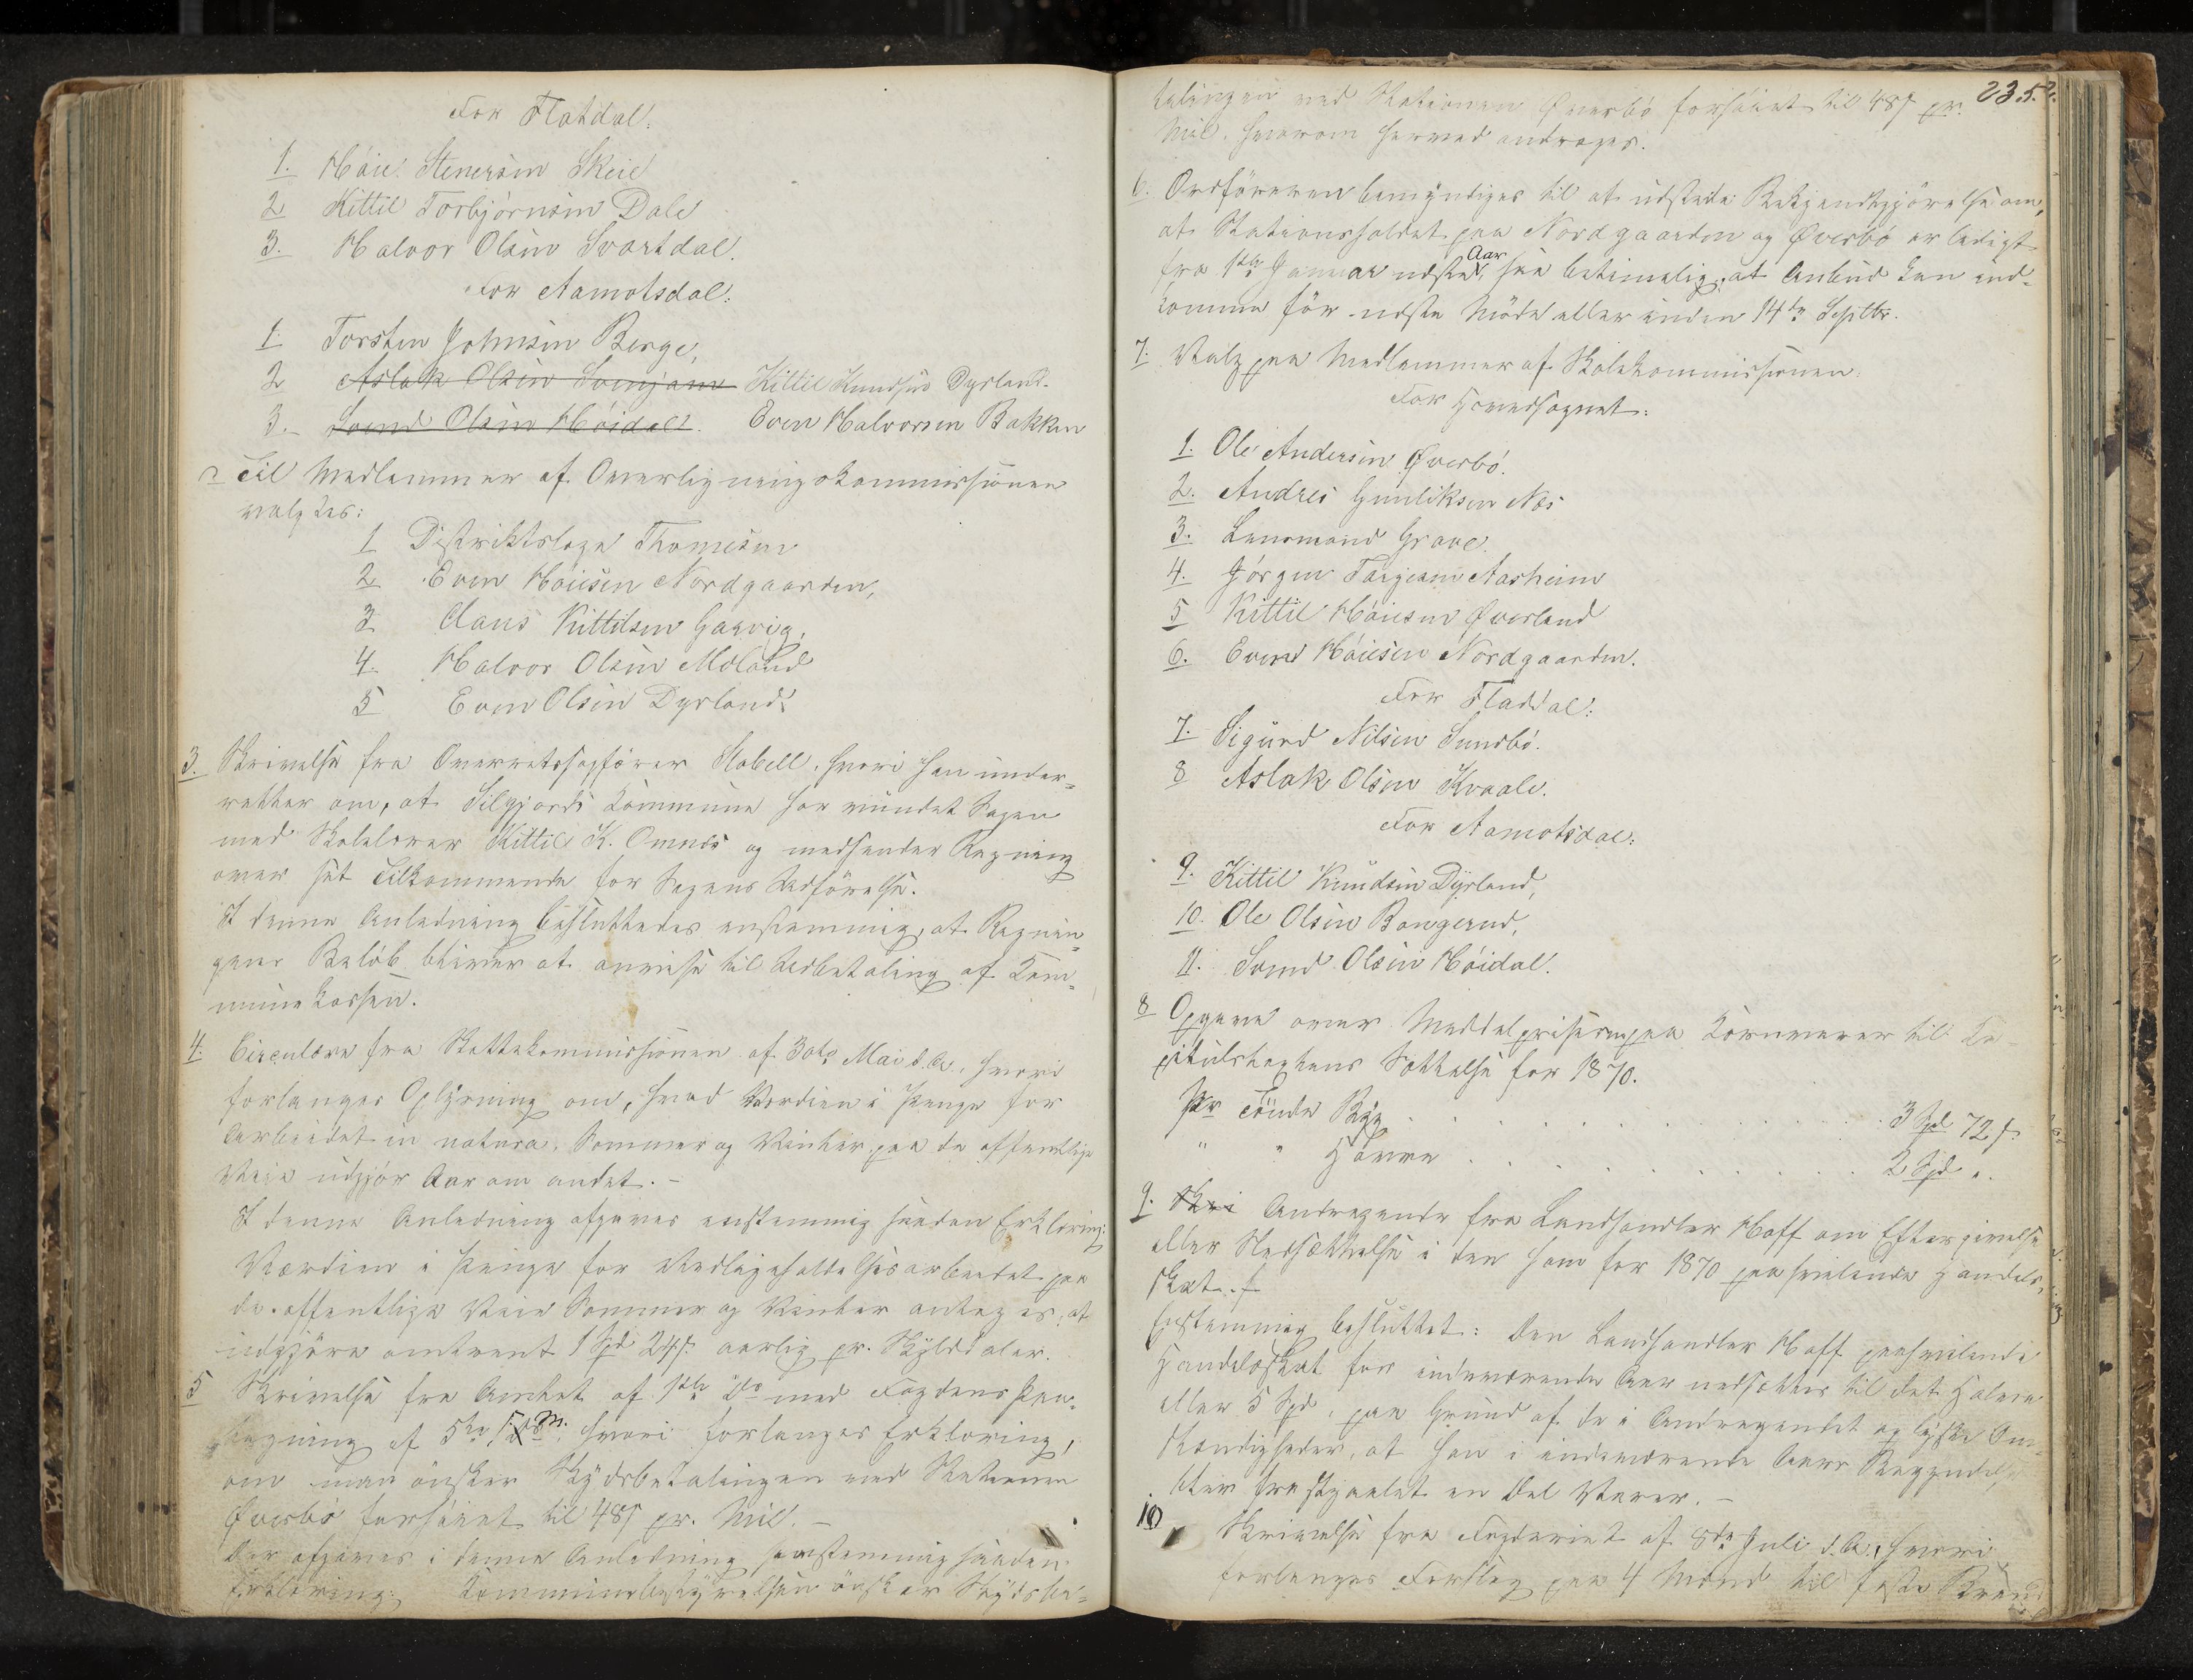 For Flatdal:
1. Høie Stenersen Skeie
2 Kittil Torbjørnsen Dale
3. Halvor Olsen Svartdal.
For Aamotsdal:
1 Torsten Johnsen Berge,
2 Aslak Olsen Svinjom Kittil Knudsen Dyrland.
3. Svend Olsen Høidal. Even Halvorsen Bakken
2 Til Medlemmer af Overligningskommissionen
valgtes:
1 Distriktslæge Thomesen
2 Even Høiesen Nordgaarden,
3 Claus Kittilsen Garvig,
4. Halvor Olsen Moland
5 Even Olsen Dyrland.
3. Skrivelse fra Overretssagfører Stabell, hvori han under-
retter om, at Siljords Kommune har vundet Sagen
med Skolelærer Kittil K. Omnes og medsender Regning
over sit Tilkommende for Sagens Udførelse.
I denne Anledning besluttedes enstemmig, at Regnin-
gens Beløb bliver at anvise til Udbetaling af Kom-
munekassen.
4. Circulære fra Skattekommissionen af 30te Mai d.A., hvori
forlanges Oplysning om, hvad Værdien i Penge for
Arbeidet in natura, Sommer og Vinter, paa de offentlige
Veie udgjør Aar om andet. –
I denne Anledning afgaves enstemmig saadan Erklæring:
Værdien i Penge for Vedligeholdelsesarbeidet paa
de offentlige Veie Sommer og Vinter antages, at
udgjøre omtrent 1 Spd 24 s. aarlig pr. Skylddaler.
5 Skrivelse fra Amtet af 1ste ds med Fogdens Paa-
tegning af 5te s.M. hvori forlanges Erklæring,
om man ønsker Skydsbetalingen ved Stationen
Øverbø forhøiet til 48 s pr. Mil. –
Der afgaves i denne Anledning enstemmig saadan
Erklæring: Kommunebestyrelsen ønsker Skydsbe-
235.
talingen ved Stationen Øverbø forhøiet til 48 s pr.
Mil, hvorom herved andrages.
6. Ordføreren bemyndiges til at udstede Bekjendtgjørelse om,
at Stationsholdet paa Nordgaarden og Øverbø er ledigt
fra 1ste Januar næste Aar, saa betimelig, at Anbud kan ind-
komme før næste Møde eller inden 14de Septbr.
7. Valg paa Medlemmer af Skolekommissionen.
For Hovedsognet:
1. Ole Andersen Øverbø.
2. Andres Gunliksen Næs
3. Lensmand Grave.
4. Jørgen Tarjesen Aasheim
5 Kittil Høiesen Øverland
6. Even Høiesen Nordgaarden.
For Fladdal:
7. Sigurd Nilsen Sundbø.
8 Aslak Olsen Kvaale.
For Aamotsdal:
9. Kittil Knudsen Dyrland,
10. Ole Olsen Bangerud,
11. Svend Olsen Høidal.
8 Opgave over Middelpriserne paa Kornvarer til Ca-
pitulstaxtens Sættelse for 1870.
Pr Tønde Byg . . . . . . . . . 3 Spd 72 s.
" " Havre . . . . . . . . . 2 Spd ".
9. Skri Andragende fra Landhandler Hoff om Eftergivelse
eller Nedsættelse i den ham for 1870 paahvilende Handels-
skat.
Enstemmig besluttet: Den Landhandler Hoff paahvilende
Handelsskat for indeværende Aar nedsættes til det Halve
eller 5 Spd, paa Grund af de i Andragendet oplyste Om-
stændigheder, at han i indeværende Aars Begyndelse
blev frastjaalet en Del Varer. –
10 Skrivelse fra Fogderiet af 8de Juli d.A., hvori
forlanges Forslag paa 4 Mænd til faste